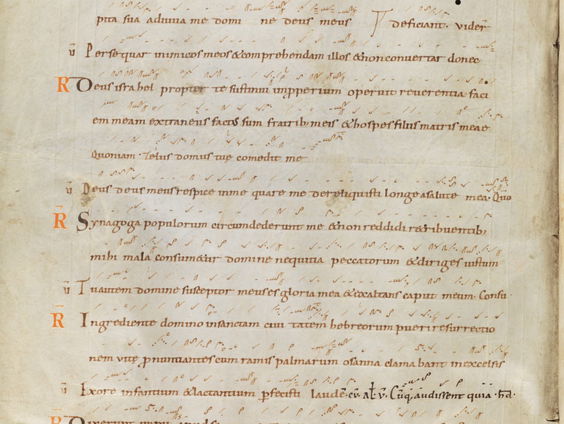 pita sua adiuua me domi ne deus meus T deficiant. vider
ṽ Persequar inimicos meos & comprehendam illos & non convertar donec
R Deus israhel propter te sustinui impperium operuit reuerentia faci
em meam extraneus factus sum fratribus meis & hospes filiis matris meae
Quoniam zelus domus tue comedit me
ṽ Deus deus meus respice in me quare me dereliquisti longe a salute mea. Quo
R Synagoga populorum circumdederunt me & non reddidi retribuentibus
mihi mala consum&ur domine nequitia peccatorum & diriges iustum
ṽ Tu autem domine susceptor meus es gloria mea & exaltans caput meum. Consu
R Ingrediente domino in sanctam ciui tatem hebreorum pueri resurrectio
nem vite pronuntiantes cum ramis palmarum osanna clamabant in excelsis
ṽ Exore infantium & lactantium perfecisti laudē Cūq, audissent quia
R